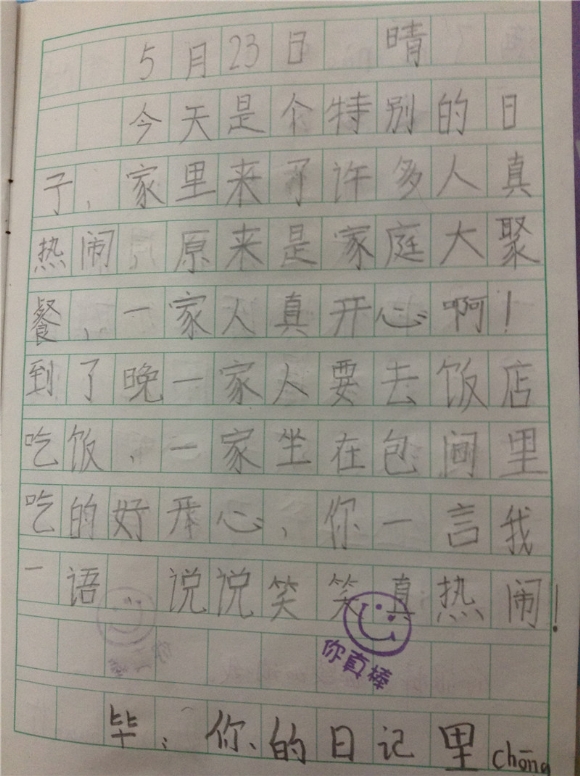 5月23日 晴
今天是个特别的日
子，家里来了许多人真
热闹 原来是家庭大聚
餐，一家人真开心啊！
到了晚一家人要去饭店
吃饭，一家坐在包间里
吃的好开心，你一言我
一语 说说笑笑真热闹！
你真棒
毕：你的日记里chōng